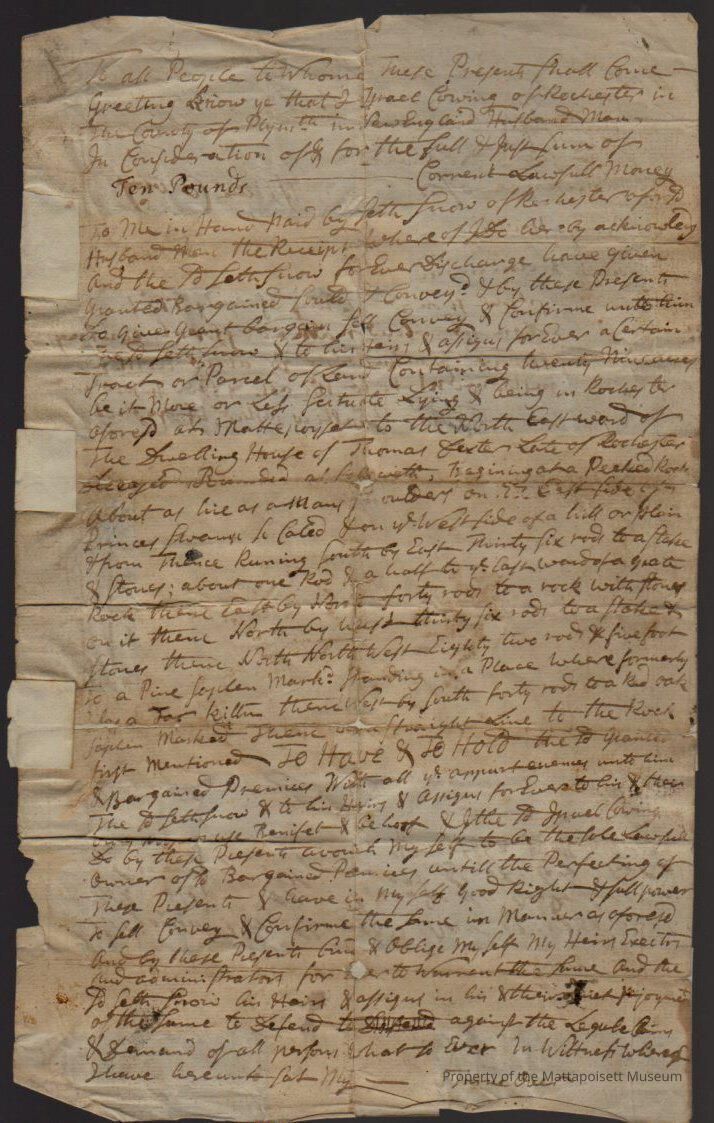 To all People to Whome These Presents shall Come
Greeting Know ye that I Israel Cowing of Rochester in
The County of Plymth in New England Husband Man
In Consideration of & for the full & Just sum of
Ten Pounds Corrent Lawfull Money
To Me in Hand paid by Seth Snow of Rochester afores'd
Husband Man the Receipt whereof I Do hereby acknowledg
And the s'd Seth Snow for Ever Discharge have given
Granted Bargained sould & Convey'd & by these Presents
Do Give Grant bargain sell Convey & Confirme unto him
the s'd Seth Snow & to his Heirs & assigns for Ever a Certain
Tract or Parcel of Land Containing twenty Nine acres
be it More or Less Scituate Lying & being in Rochester
afores'd at Mattepoyset to the North East ward of
The Dwelling House of Thomas Dexter Late of Rochester
Deceased Bounded as followeth, Begining at a Peeked Rock
about as hie as a Man on ye East side of
Princes Swamp so Caled & on ye West side of a hill or plain
& from Thence Runing South by East Thirty six rods to a stake
& Stones; about one Rod & a half to ye East ward of a grate
Rock thence East by North forty rods to a rock with stones
on it thence North by West thirty six rods to a stake &
stones thence North North West Eighty two rods & five foot
to a Pine Saplen Mark'd standing in a Place where formerly
was a Tar Killn thence West by South forty rods to a Red oak
saplen Marked thence on a straight Line to the Rock
first Mentioned To Have & To Hold the s'd Granted
& Bargained Premises With all ye appurtenences unto him
The s'd Seth Snow & to his Heirs & assigns for Ever to his & their
use Benifet & behoof & I the s'd Israel Cowing
Do by these Presents avouch My self to be the sole Lawfull
owner of s'd Bargained Premices untill the Perfecting of
These Presents & have in My self Good Right & full power
To sell Convey & Confirme the same in Manner afores'd
And by these Presents bind & oblige My self My Heirs Exectrs
and administrators for Ever to Warrent the same And the
s'd Seth Snow his Heirs & assigns in his & their
of the same to Defend against the Legule Claims
& Demand of all persons What so Ever In Wittness whereof
I have hereunto set My
Property of the Mattapoisett Museum